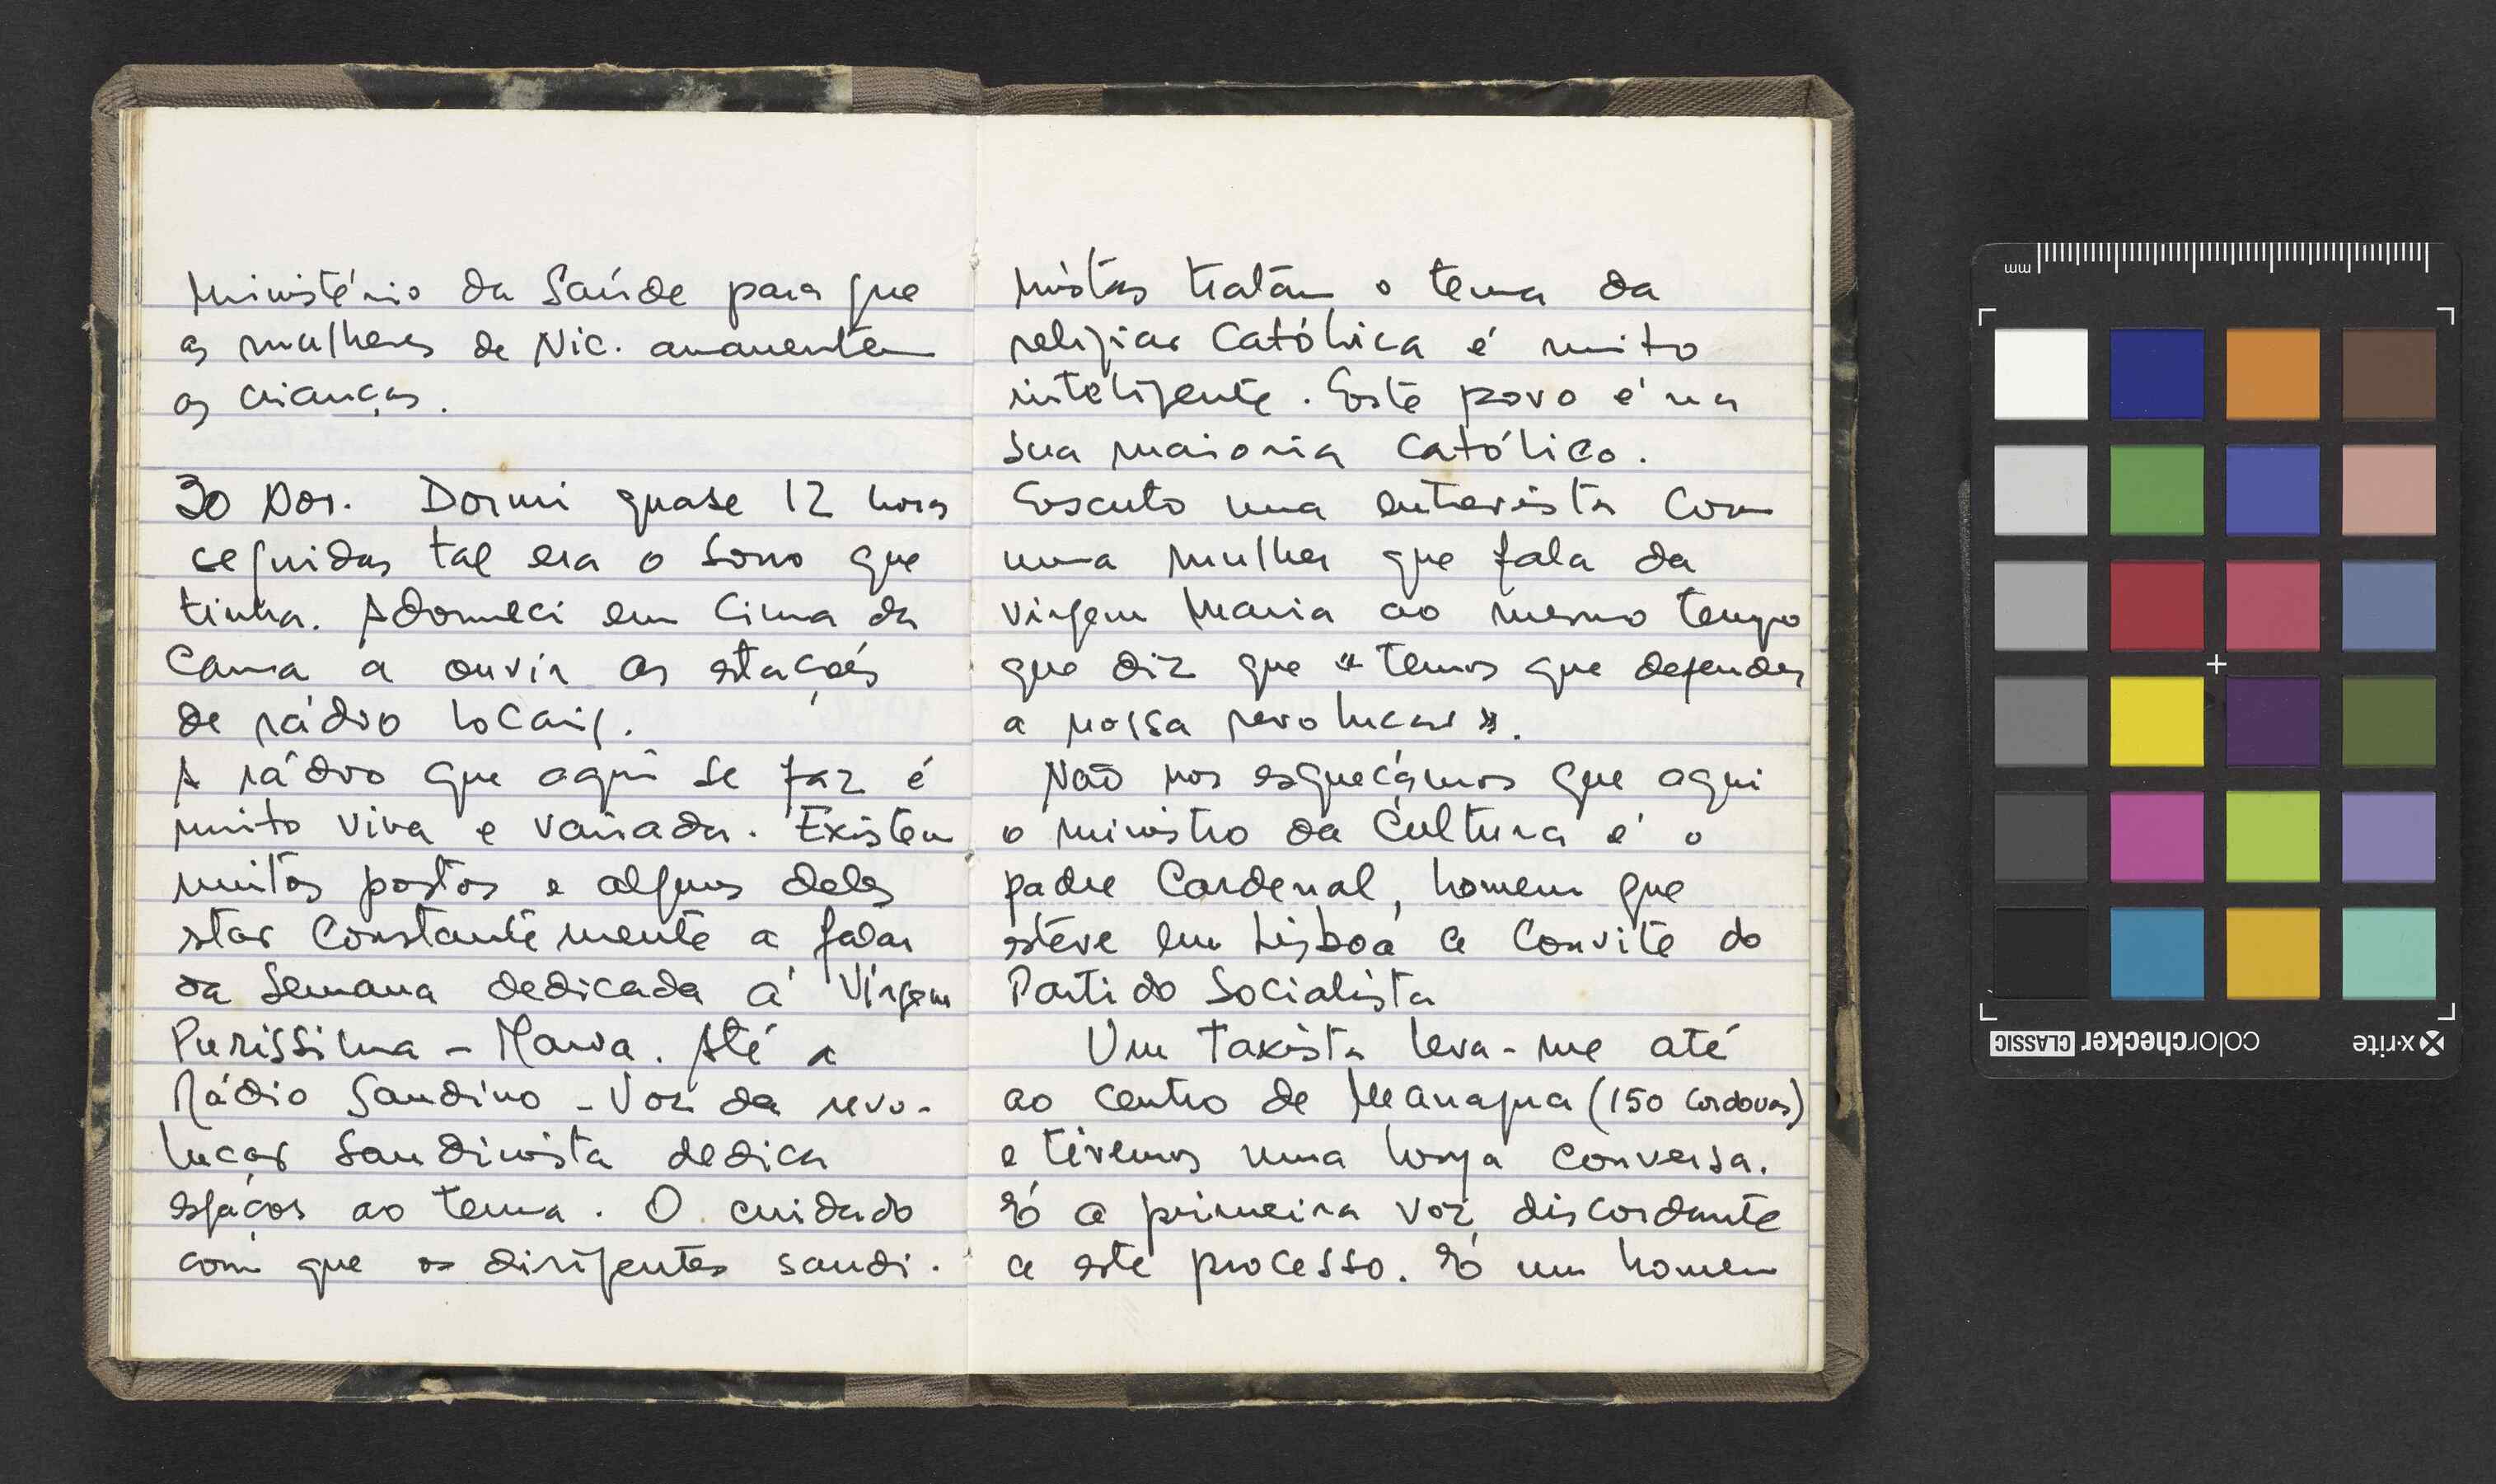 Ministério da Saúde para que
as mulheres de Nic. amamentem
as crianças.
30 Nov. Dormi quase 12 horas
seguidas tal era o sono que
tinha. Adormeci em cima da
cama a ouvir as estações
de rádio locais.
A rádio que aqui se faz é
muito viva e variada. Existem
muitos postos e alguns deles
estão constantemente a falar
da Semana dedicada à Virgem
Purissima - Maria. Até a
Rádio Sandino - Voz da revo-
lução Sandinista dedica
espaços ao tema. O cuidado
com que os dirigentes sandi-
nistas tratam o tema da
religião Católica é muito
inteligente. Este povo é na
sua maioria católico.
Escuto uma entrevista com
uma mulher que fala da
virgem Maria ao mesmo tempo
que diz que « temos que defender
a nossa revolução ».
Não nos esqueçamos que aqui
o ministro da Cultura é o
padre Cardenal, homem que
esteve em Lisboa a convite do
Partido Socialista
Um taxista leva-me até
ao centro de Managua (150 cordovas)
e tivemos uma longa conversa.
É a primeira voz discordante
a este processo. É um homem
mm
x-rite colorchecker CLASSIC